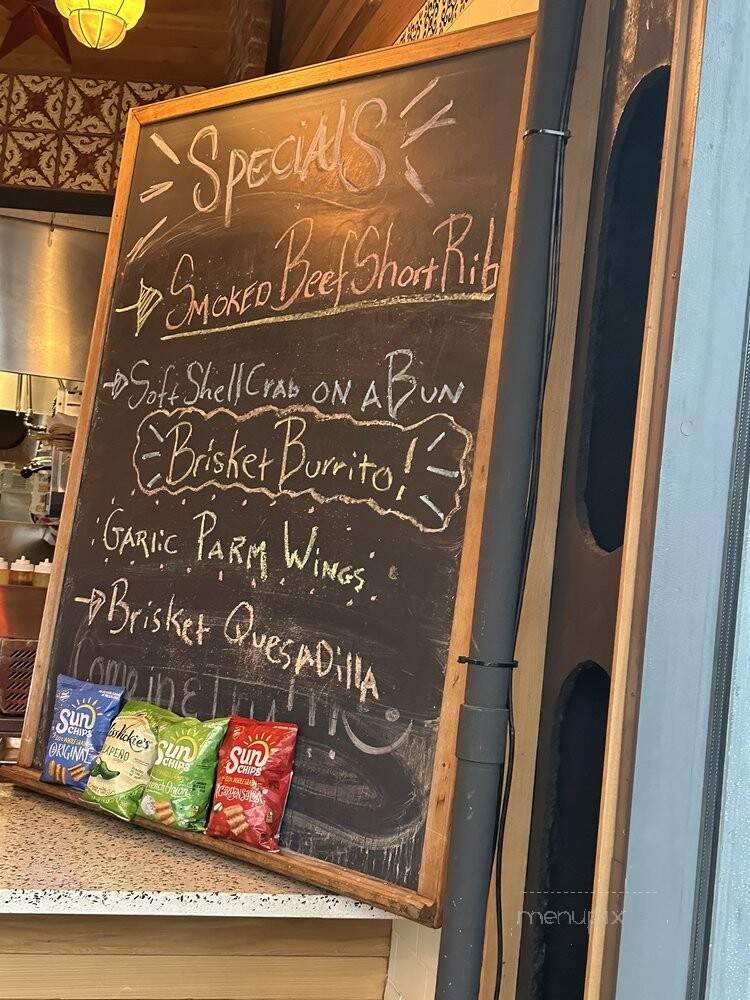 SpeciAlS
SMOKED Beef Short Rib
Soft Shell Crab ON A BUN
Brisket Burrito!
GARlic PARM WINGS
Brisket QuesADillA
Come in & try
Sun
CHIPS
ORIGINAL
Sun
CHIPS
French Onion
Sun
CHIPS
Garden Salsa
menupix